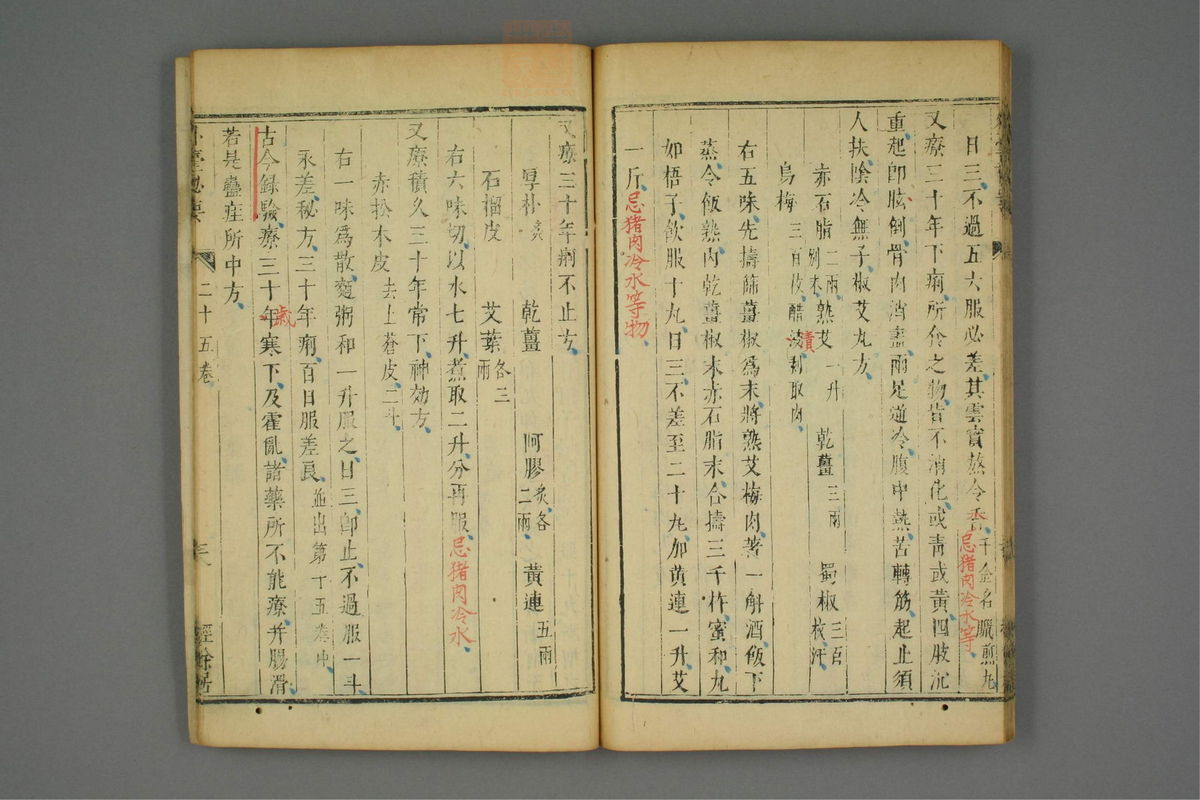 日三不過五六服必差其雲實熬令香千金名臘煎丸
忌猪肉冷水等
又療三十年下痢所食之物皆不消化或青或黃四肢沉
重起即眩倒骨肉消盡兩足逆冷腹中熱苦轉筋起止須
人扶陰冷無子椒艾丸方
赤石脂二兩別末 熟艾一升 乾薑三兩 蜀椒三百枚汗
烏梅三百枚醋漬剥取肉
右五味先擣篩薑椒爲末將熟艾梅肉著一斛酒飯下
蒸令飯熟内乾薑椒末赤石脂末合擣三千杵蜜和丸
如梧子飲服十丸日三不差至二十丸加黄連一升艾
一斤忌猪肉冷水等物
又療三十年痢不止方
厚朴炙 乾薑 阿膠炙各二兩 黃連五兩
石榴皮 艾葉各三兩
右六味切以水七升煮取二升分再服忌猪肉冷水
又療積久三十年常下神効方
赤松木皮去上蒼皮二斗
右一味爲散麵粥和一升服之日三即止不過服一斗
永差秘方三十年痢百日服差良並出第十五卷中
歲
古今録驗療三十年寒下及霍亂諸藥所不能療并腸滑
若是蠱疰所中方
外臺秘要 二十五卷 三 經餘居